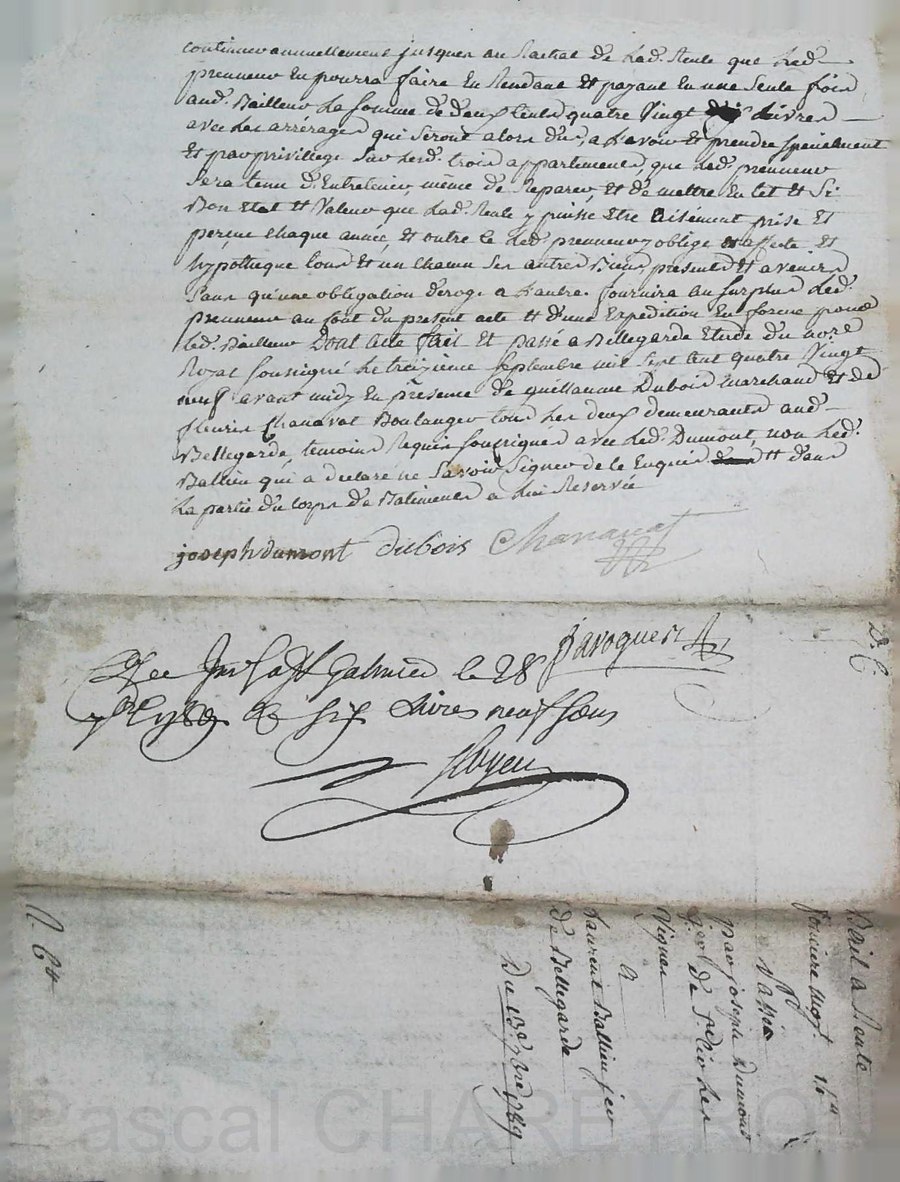 continuer annuellement jusques au Rachat de lad. Rente que led.
preneur en pourra faire en Rendant et payant en une seule fois
aud. Bailleur la somme de deux cents quatre vingt livres
avec les arrérages qui seront alors dus, a avoir et prendre spécialement
et par privillege sur lesd. trois appartements, que led. preneur
sera tenu d'Entretenir même de Reparer, et de mettre En tel et si
Bon Etat et Valeur que lad. Rente y puisse etre aisément prise et
perçue chaque année, et outre ce led. preneur y oblige affecte et
hypotheque tous et un chacun ses autres Biens presents et avenirs
sans qu'une obligation deroge a l'autre. fournira au surplus led.
preneur au cout du present acte et d'une Expédition En forme pour
led. Bailleur Dont acte fait et passé a Bellegarde Etude du nore
Royal soussigné le treizieme septembre mil sept cent quatre vingt
neuf avant midy en présence de guillaume Dubois marchand et de
fleurie Chanavat Boulanger tous les deux demeurants aud.
Bellegarde, temoins Requis soussignés avec led. Dumont, non led.
Ballieu qui a déclaré ne savoir signer de ce Enquis et dans
la partie du corps de Batiments a lui Reservée
joseph dumont dubois Chanavat
D. C.
a St Galmier le 28
six Livres neuf sous
Bail a Rente
fonciere 14tt
passé
par joseph Dumont
de
Vignes
a
Laurent Ballieu
de Bellegarde
Du 13e 7bre 1789
Pascal CHAREYRO